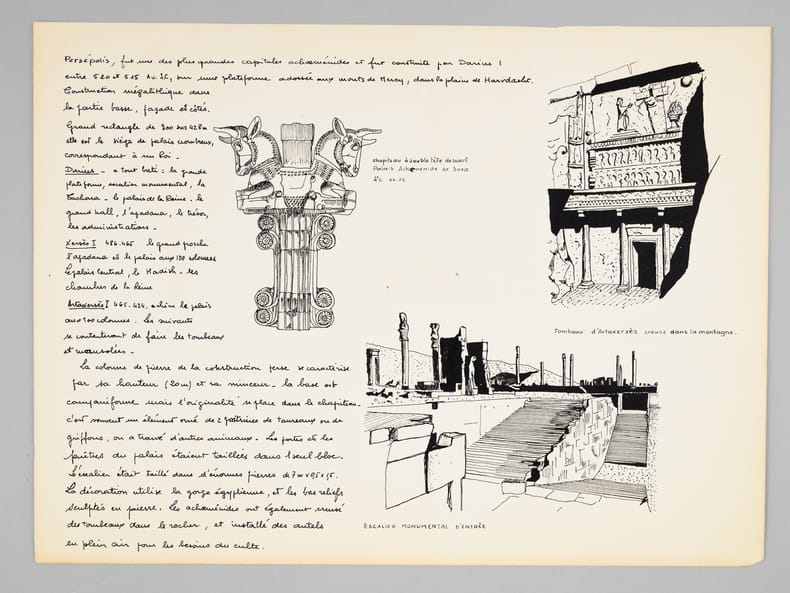 Persépolis, fut une des plus grandes capitales achæménides et fut construite par Darius I
entre 520 et 515 Av. JC, sur une plateforme adossée aux monts de Mercy, dans la plaine de Harvdasht.
Construction mégalithique dans
la partie basse, façade et côtés.
Grand rectangle de 300 sur 428m
elle est le siège de palais nombreux,
correspondant à un roi -
Darius - a tout bati : la grande
plateforme, escalier monumental, le
Tachara - le palais de la Reine - le
grand hall, l'apadana, le trésor,
les administrations -
Xerxès I 486-465 le grand porche
l'apadana et le palais aux 100 colonnes
le palais central, le Hadish - les
chambres de la Reine
Artaxerxès I 465-424, achève le palais
aux 100 colonnes. Les suivants
se contenteront de faire les tombeaux
et mausolées -
La colonne de pierre de la construction perse se caractérise
par sa hauteur (20m) et sa minceur - la base est
campaniforme mais l'originalité se place dans le chapiteau -
c'est souvent un élément orné de 2 poitrines de taureaux ou de
griffons, on a trouvé d'autres animaux - Les portes et les
fenêtres du palais étaient taillées dans 1 seul bloc.
L'escalier était taillé dans d'énormes pierres de 7m x
La décoration utilise la gorge égyptienne, et les bas reliefs
sculptés en pierre. Les achæménides ont également creusé
des tombeaux dans le rocher, et installé des autels
en plein air pour les besoins du culte.
chapiteau à double tête de boeuf.
Palais Achæménide de Suza
av. JC
Tombeau d'Artaxersès creusé dans la montagne.
ESCALIER MONUMENTAL D'ENTRÉE